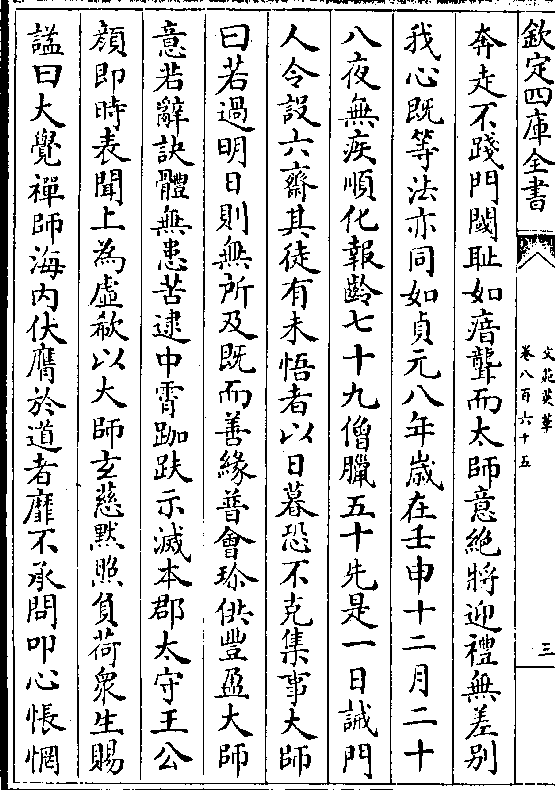 欽定四庫全書
文苑英華
卷八百六十五
三
奔走不踐門閾耻如瘖聾而大師意絶將迎禮無差别
我心既等法亦同如貞元八年歲在壬申十二月二十
八夜無疾順化報齡七十九僧臘五十先是一日誡門
人令設六齋其徒有未悟者以日暮恐不克集事大師
曰若過明日則無所及既而善緣普會珍供豐盈大師
意若辭訣體無患苦逮中霄跏趺示滅本郡太守王公
顔即時表聞上為虛欷以大師玄慈黙照負荷衆生賜
諡曰大覺禪師海内伏膺於道者靡不承問叩心悵惘